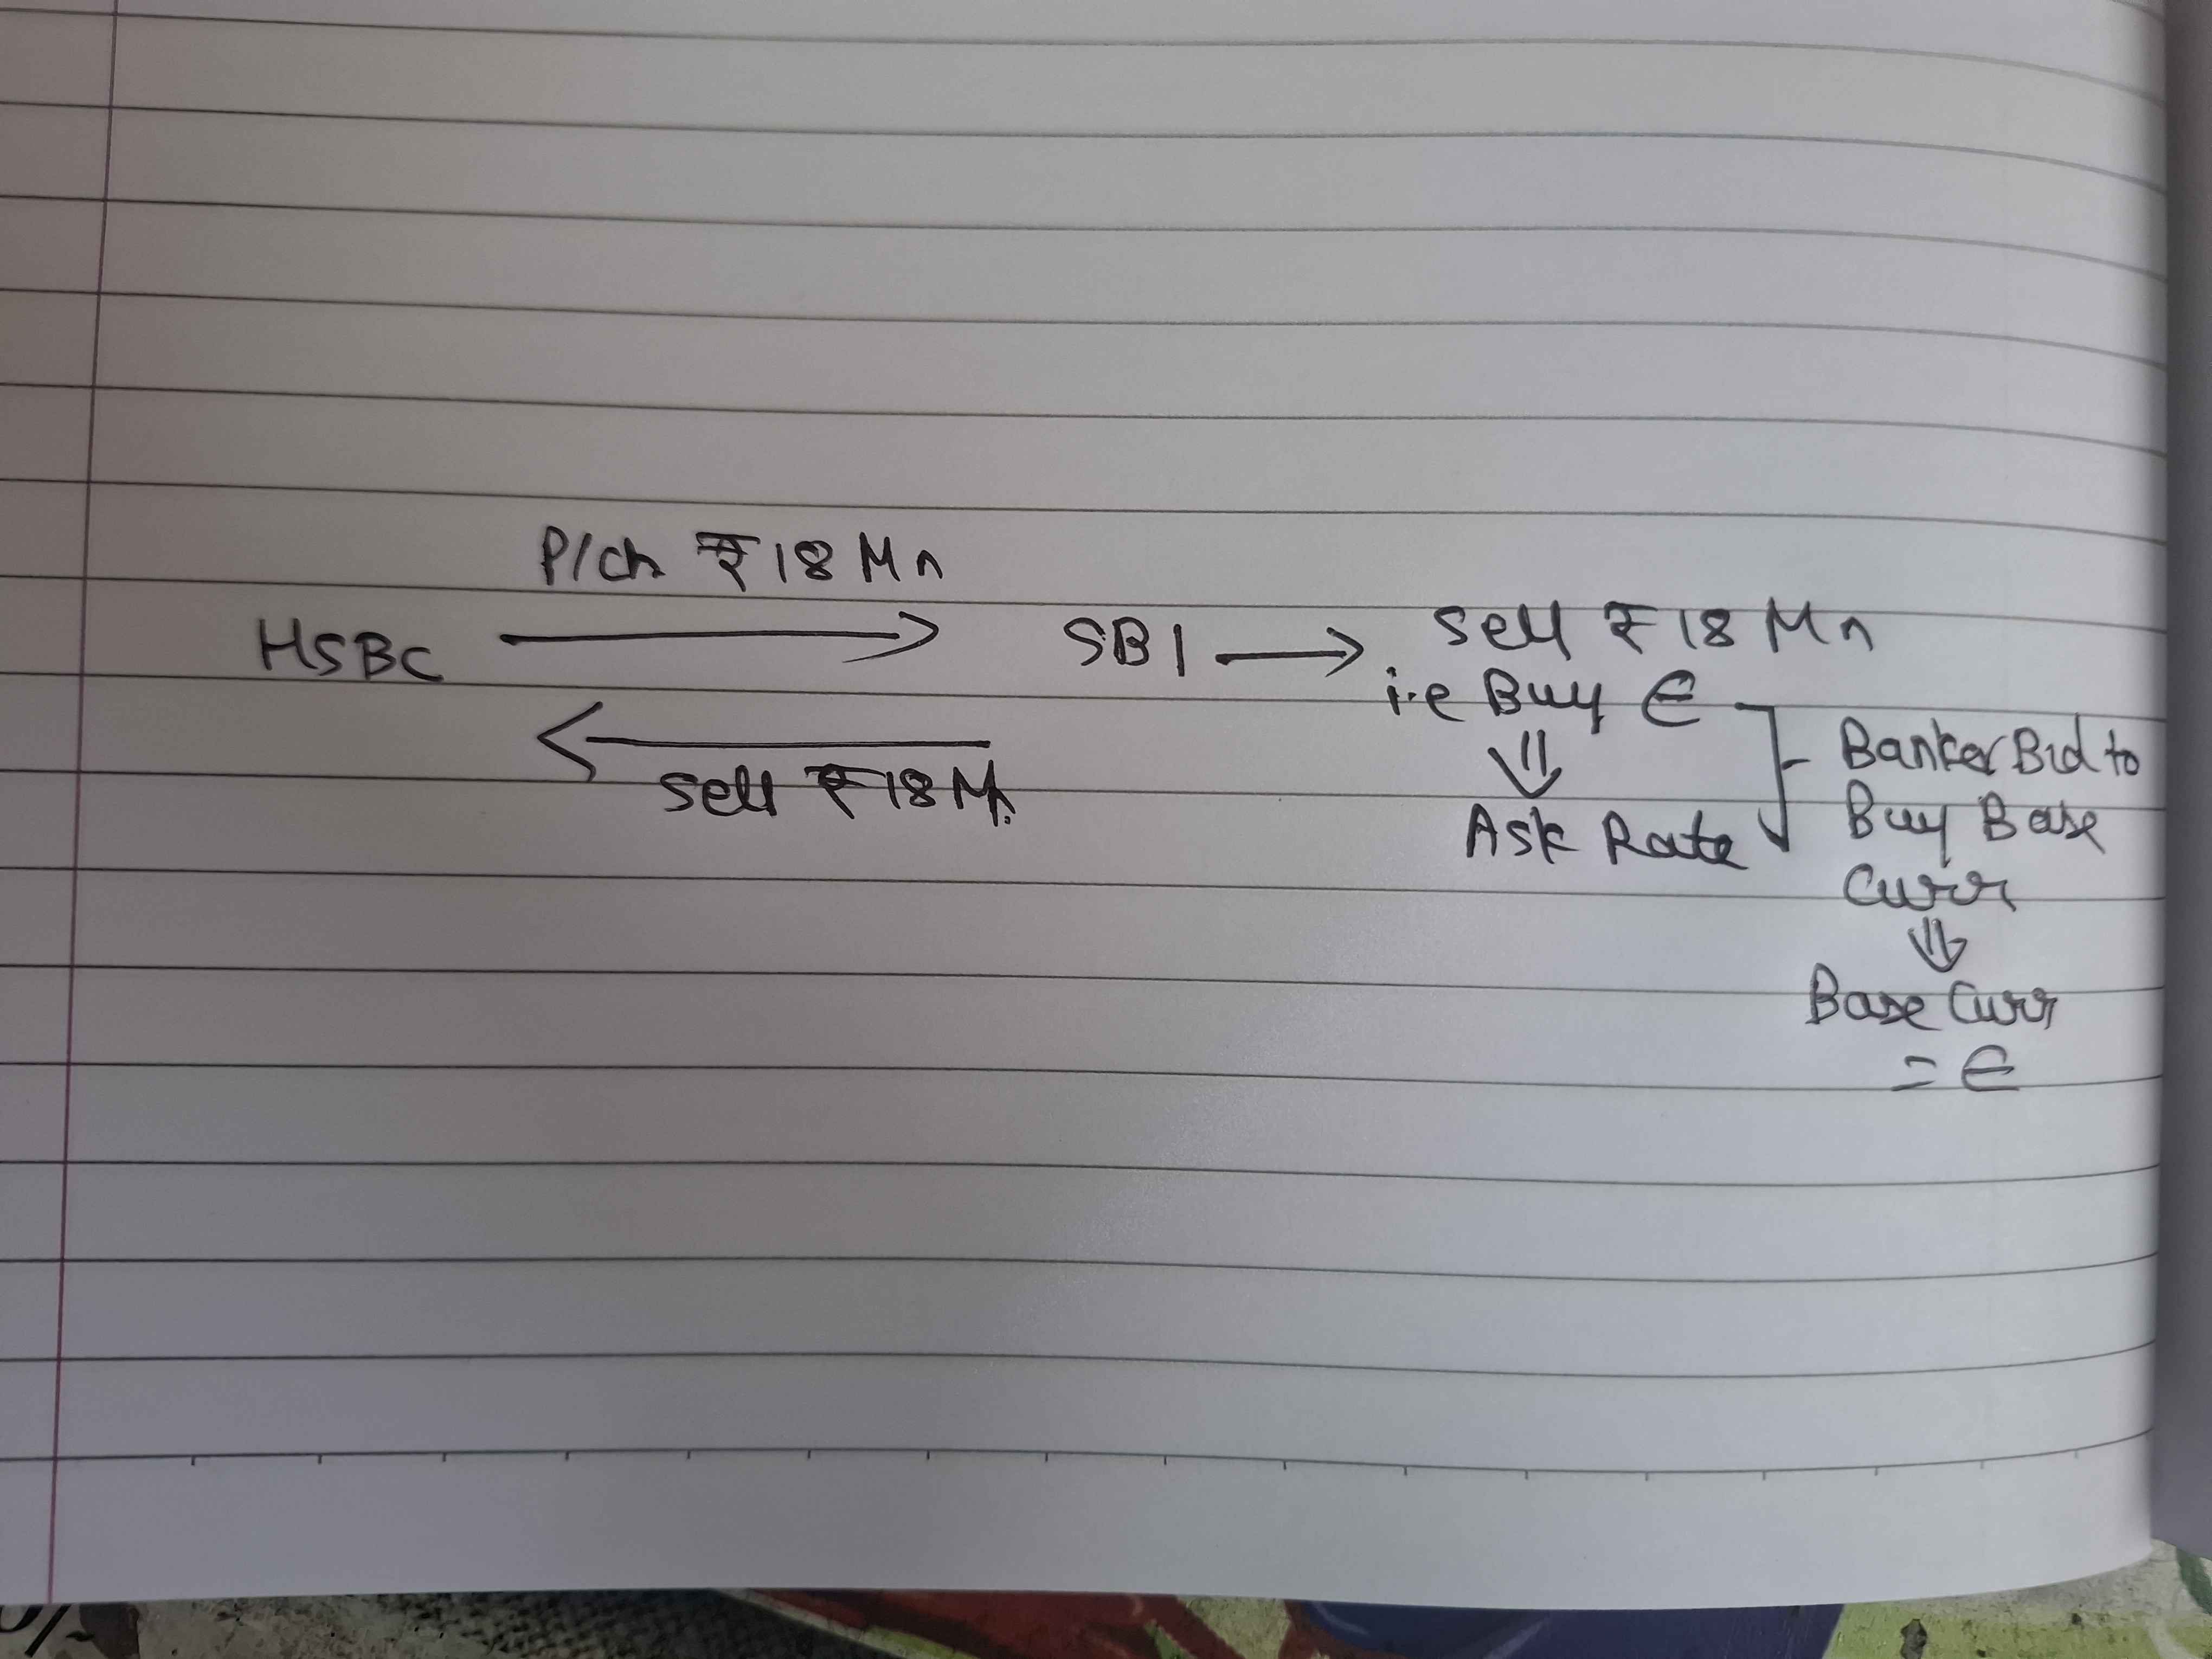 P/ch ₹18 Mn
HSBC → SBI → Sell ₹18 Mn
i.e Buy €
← Sell ₹18 Mn.
⇓
Ask Rate
Banker Bid to
Buy Base
Curr
⇓
Base Curr
= €